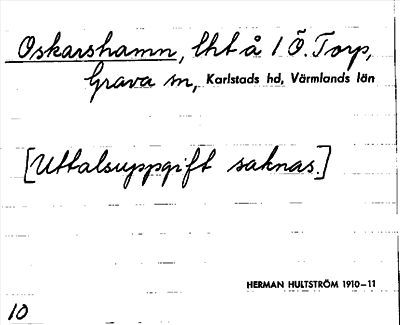 Oskarshamn, lht å 1 Ö. Torp,
Grava sn, Karlstads hd, Värmlands län
[Uttalsuppgift saknas.]
HERMAN HULTSTRÖM 1910–11
10